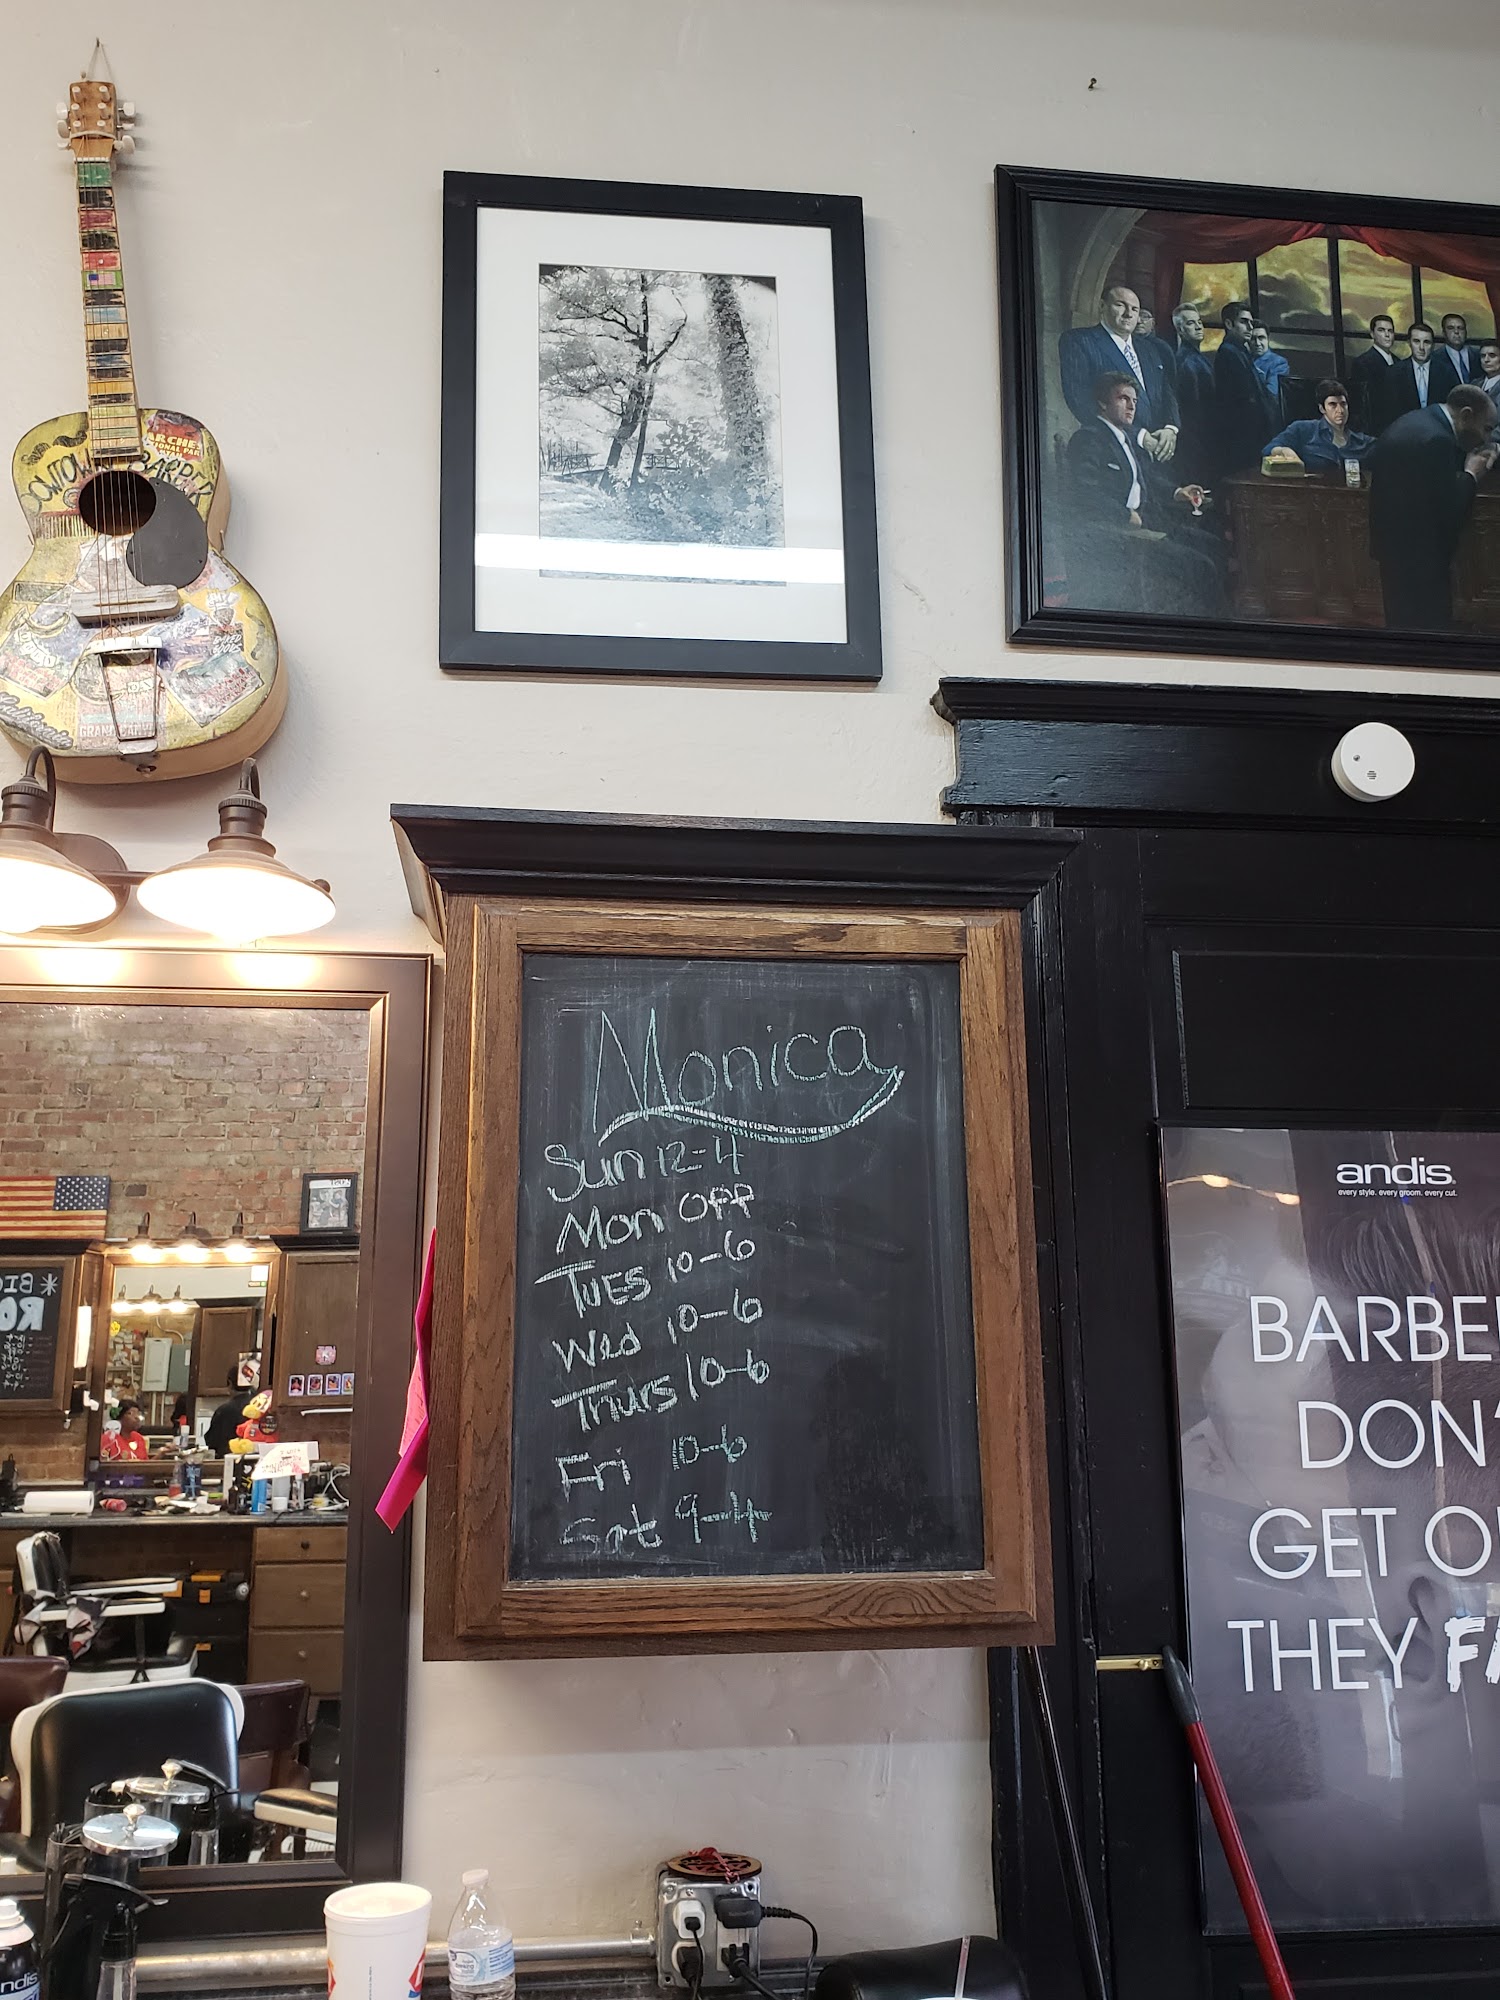 ARCHES
DOWTOWN BARBER
California
GRAND CANYON
Monica
Sun 12-4
Mon OFF
TUES 10-6
Wed 10-6
Thurs 10-6
Fri 10-6
Sat 9-4
andis
every style. every groom. every cut.
BARBE
DON'
GET O
THEY
BIG
RO
ndis